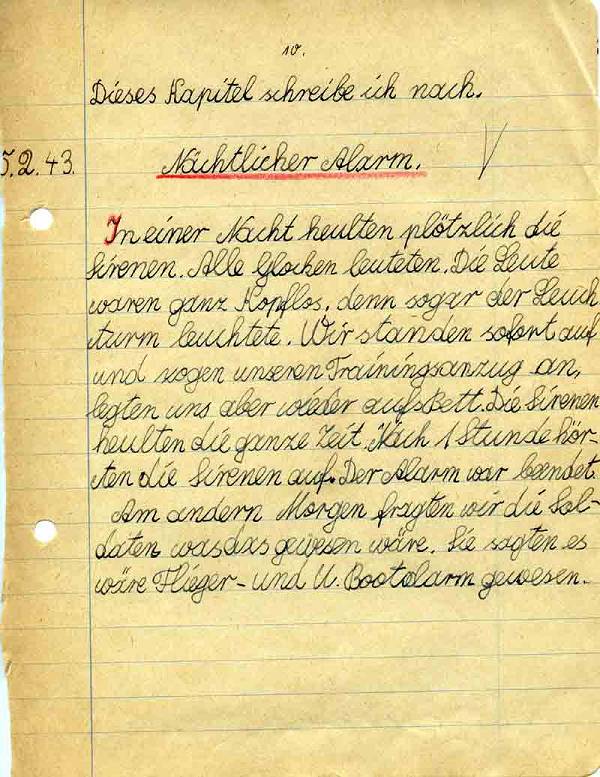 10.
Dieses Kapitel schreibe ich nach.
5.2.43.
Nächtlicher Alarm.
In einer Nacht heulten plötzlich die
Sirenen. Alle Glocken leuteten. Die Leute
waren ganz Kopflos, denn sogar der Leuch
turm leuchtete. Wir standen sofort auf
und zogen unseren Trainingsanzug an,
legten uns aber wieder aufs Bett. Die Sirenen
heulten die ganze Zeit. Nach 1 Stunde hör-
ten die Sirenen auf. Der Alarm war beendet.
Am andern Morgen fragten wir die Sol-
daten was das gewesen wäre. Sie sagten es
wäre Flieger- und U. Bootalarm gewesen.